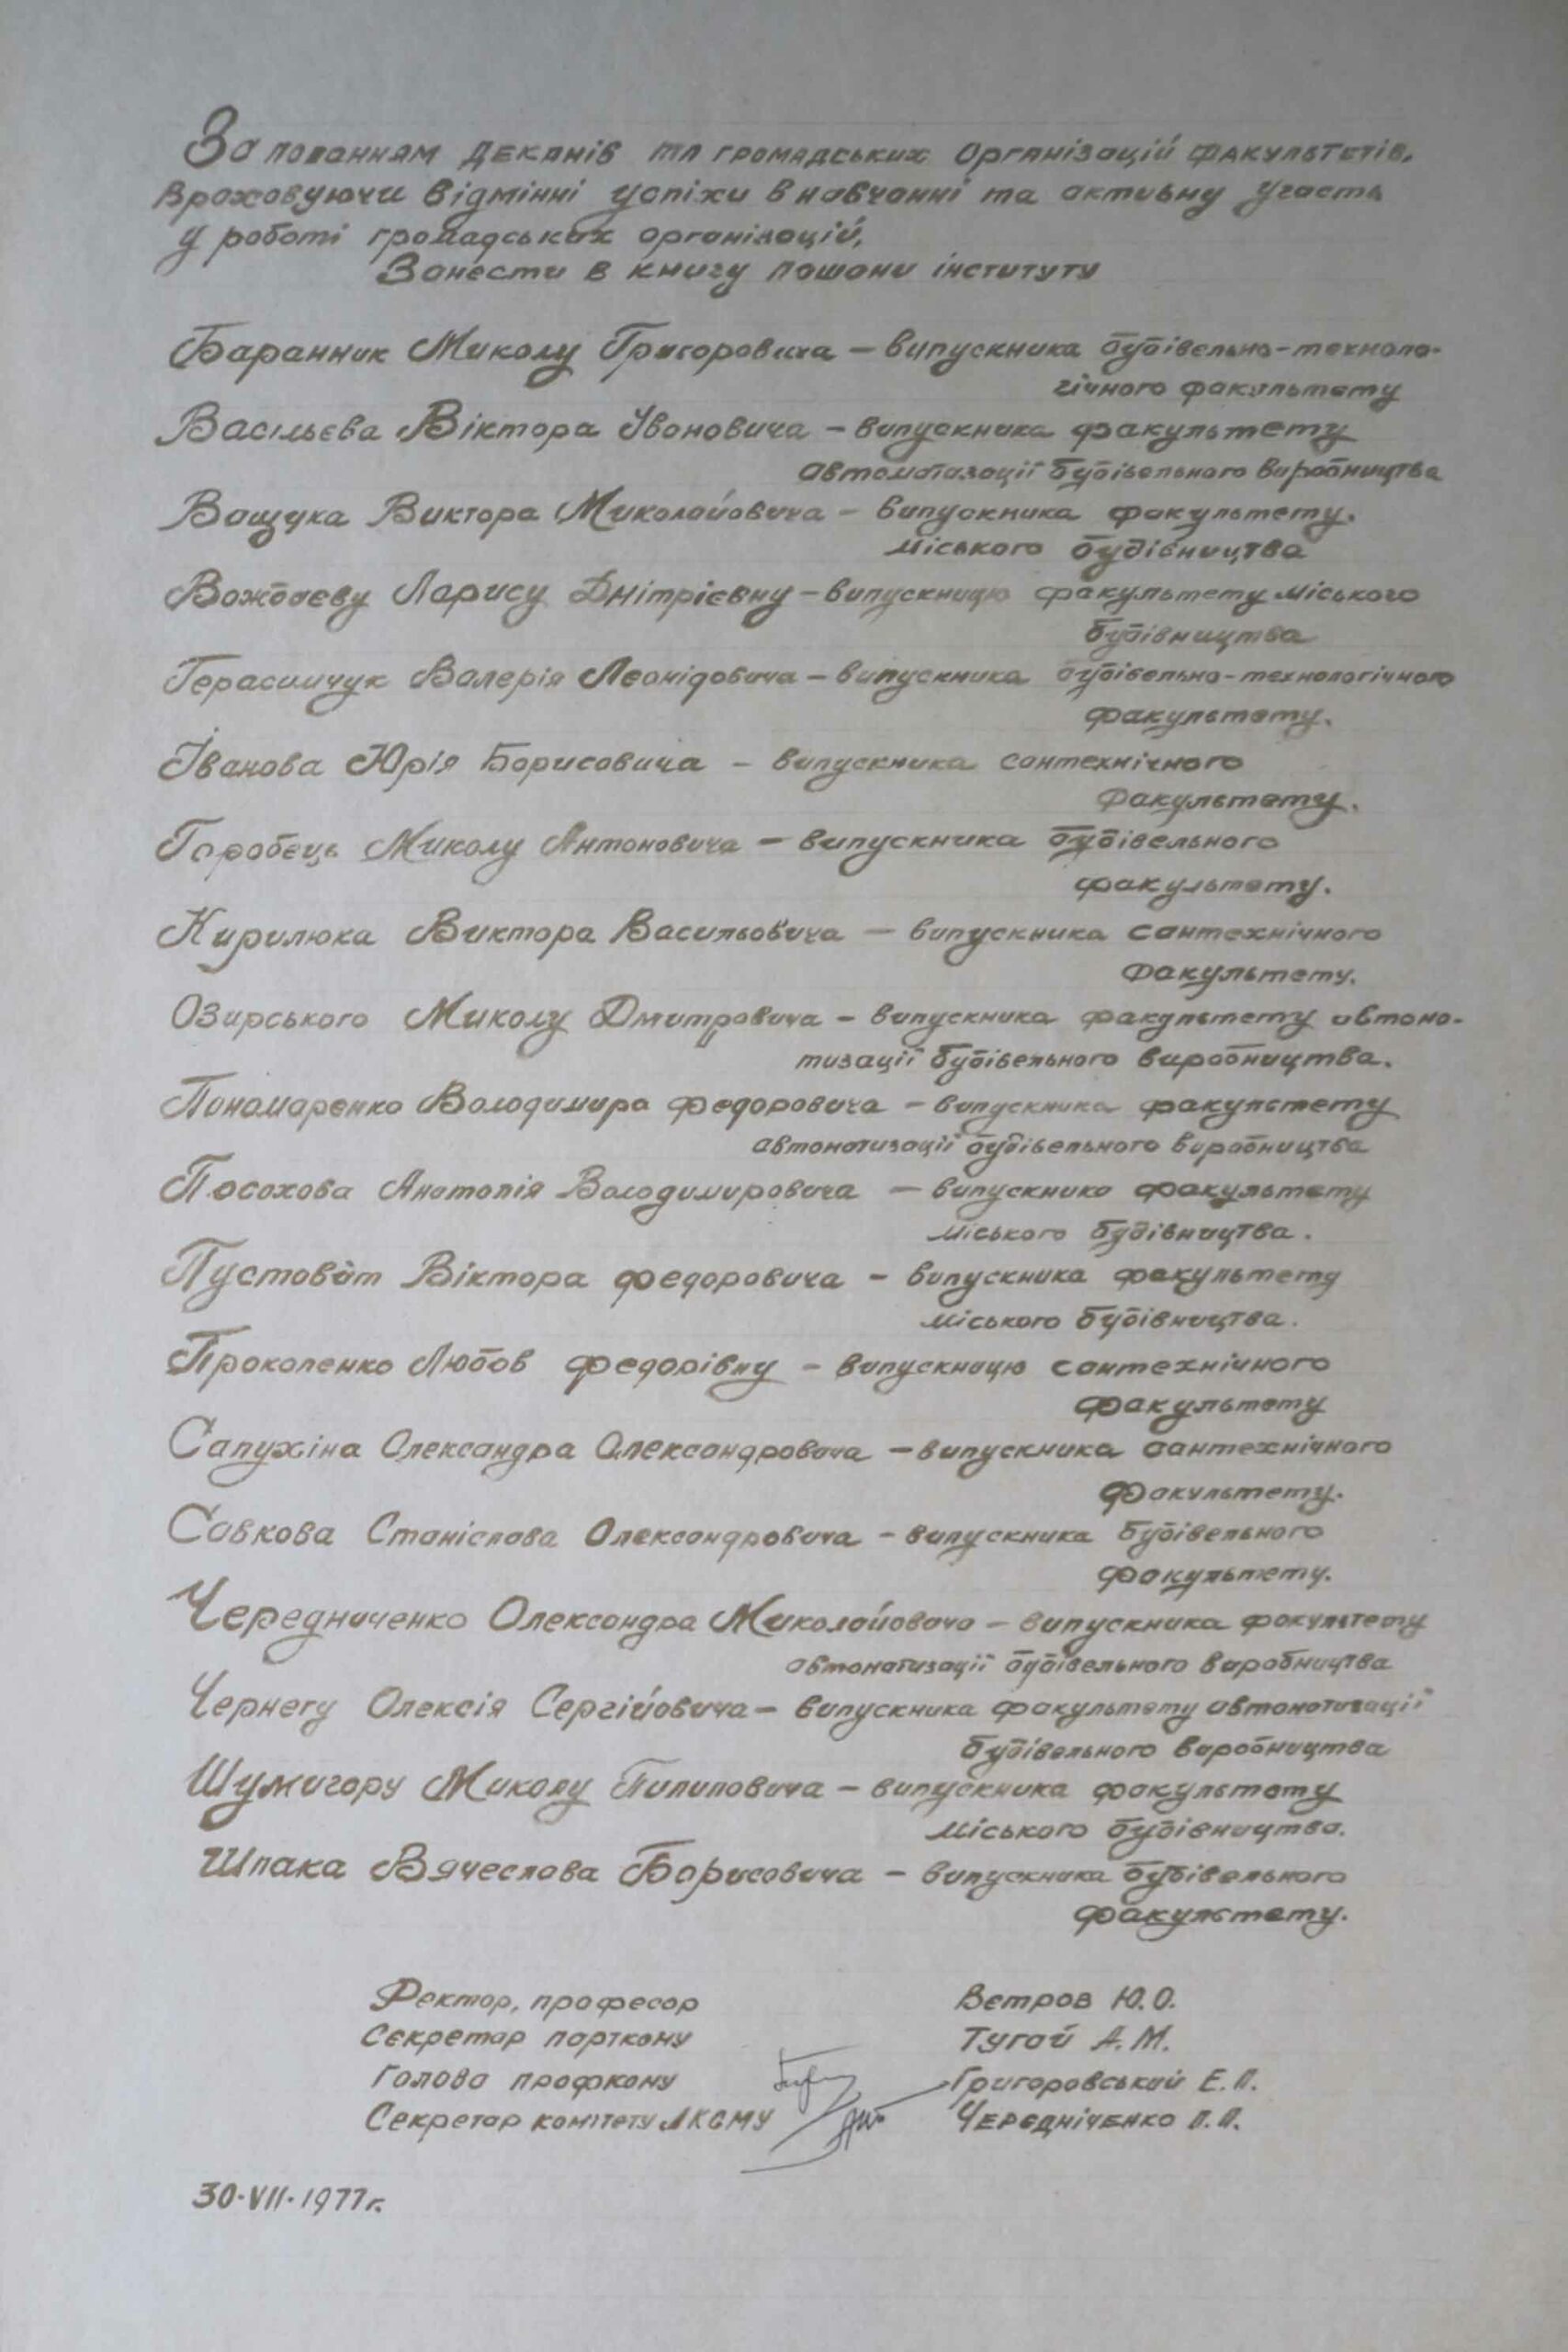 За поданням деканів та громадських організацій факультетів,
враховуючи відмінні успіхи в навчанні та активну участь
у роботі громадських організацій,
Занести в книгу пошани інституту
Баранник Миколу Григоровича – випускника будівельно-техноло-
гічного факультету
Васільєва Віктора Івановича – випускника факультету
автоматизації будівельного виробництва
Ващука Виктора Миколайовича – випускника факультету.
міського будівництва
Вожбаєву Ларису Дмітрієвну – випускницю факультету міського
будівництва
Герасимчук Валерія Леонідовича – випускника будівельно-технологічного
факультету.
Іванова Юрія Борисовича – випускника сантехнічного
факультету.
Горобець Миколу Антоновича – випускника будівельного
факультету.
Кирилюка Виктора Васильовича – випускника сантехнічного
факультету.
Озирського Миколу Дмитровича – випускника факультету автома-
тизації будівельного виробництва.
Пономаренко Володимира Федоровича – випускника факультету
автоматизації будівельного виробництва
Посохова Анатолія Володимировича – випускника факультету
міського будівництва.
Пустовіт Віктора Федоровича – випускника факультету
міського будівництва.
Прокопенко Любов Федорівну – випускницю сантехнічного
факультету
Сапухіна Олександра Олександровича – випускника сантехнічного
факультету.
Савкова Станіслава Олександровича – випускника будівельного
факультету.
Чередниченко Олександра Миколайовича – випускника факультету
автоматизації будівельного виробництва
Чернегу Олексія Сергійовича – випускника факультету автоматизації
будівельного виробництва
Шумигору Миколу Пилиповича – випускника факультету
міського будівництва.
Шпака Вячеслава Борисовича – випускника будівельного
факультету.
Ректор, професор Ветров Ю.О.
Секретар парткому Тугай А.М.
Голова профкому Григоровський Е.П.
Секретар комітету ЛКСМУ Чередніченко П.П.
30·VII·1977г.